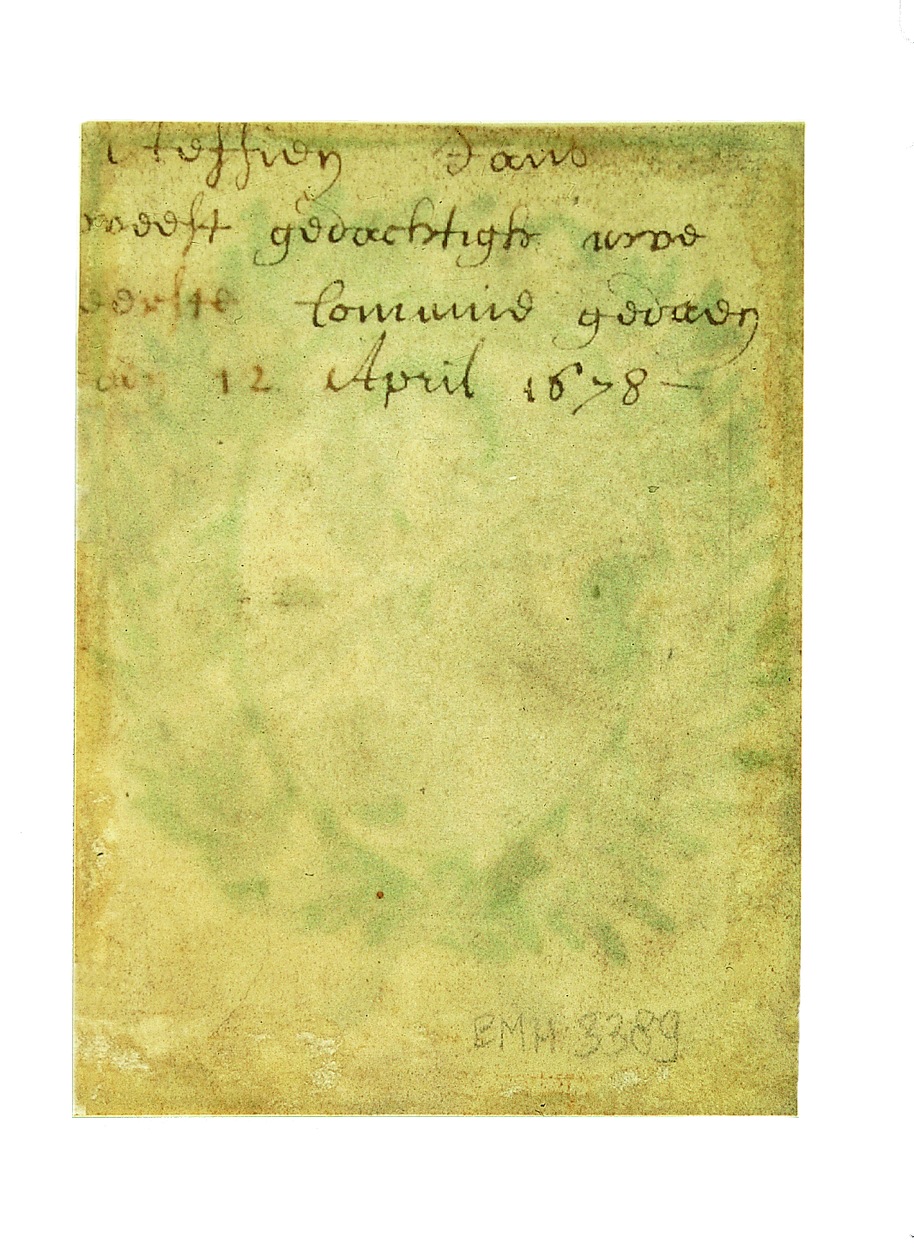 Steffien Dans
weest gedachtigh uwe
eerste Comunie gedaen
12 April 1678 —
EMH 3389